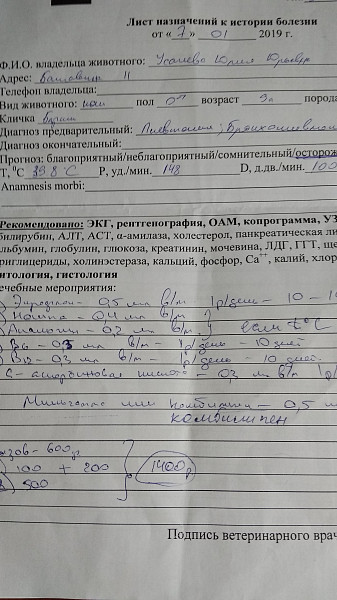 Лист назначений к истории болезни
от « 7 » 01 2019 г.
Ф.И.О. владельца животного: Юрьевич
Адрес: 11
Телефон владельца:
Вид животного: кот пол ♂ возраст 9л порода
Кличка
Диагноз предварительный: Пневмония,
Диагноз окончательный:
Прогноз: благоприятный/неблагоприятный/сомнительный/осторож
Т, ⁰С 39.8 С Р, уд./мин. 148 D, д.дв./мин. 100
Anamnesis morbi:
Рекомендовано: ЭКГ, рентгенография, ОАМ, копрограмма, УЗ
билирубин, АЛТ, АСТ, α-амилаза, холестерол, панкреатическая ли
льбумин, глобулин, глюкоза, креатинин, мочевина, ЛДГ, ГГТ, ще
риглицериды, холинэстераза, кальций, фосфор, Са⁺⁺, калий, хлор
итология, гистология
ечебные мероприятия:
– 0,5 мл в/м 1р/день – 10 –
– 0,4 мл в/м
Анальгин – 0,2 мл в/м если t°C
В6 – 0,3 мл в/м – 1р/день – 10 дней
– 0,3 мл в/м – 1р/день – 10 дней
С – аскорбиновая кислота – 0,3 мл в/м 1р/
Мильгамма или – 0,5 м
комбилипен
600р
100 + 200 1400р
500
Подпись ветеринарного врач